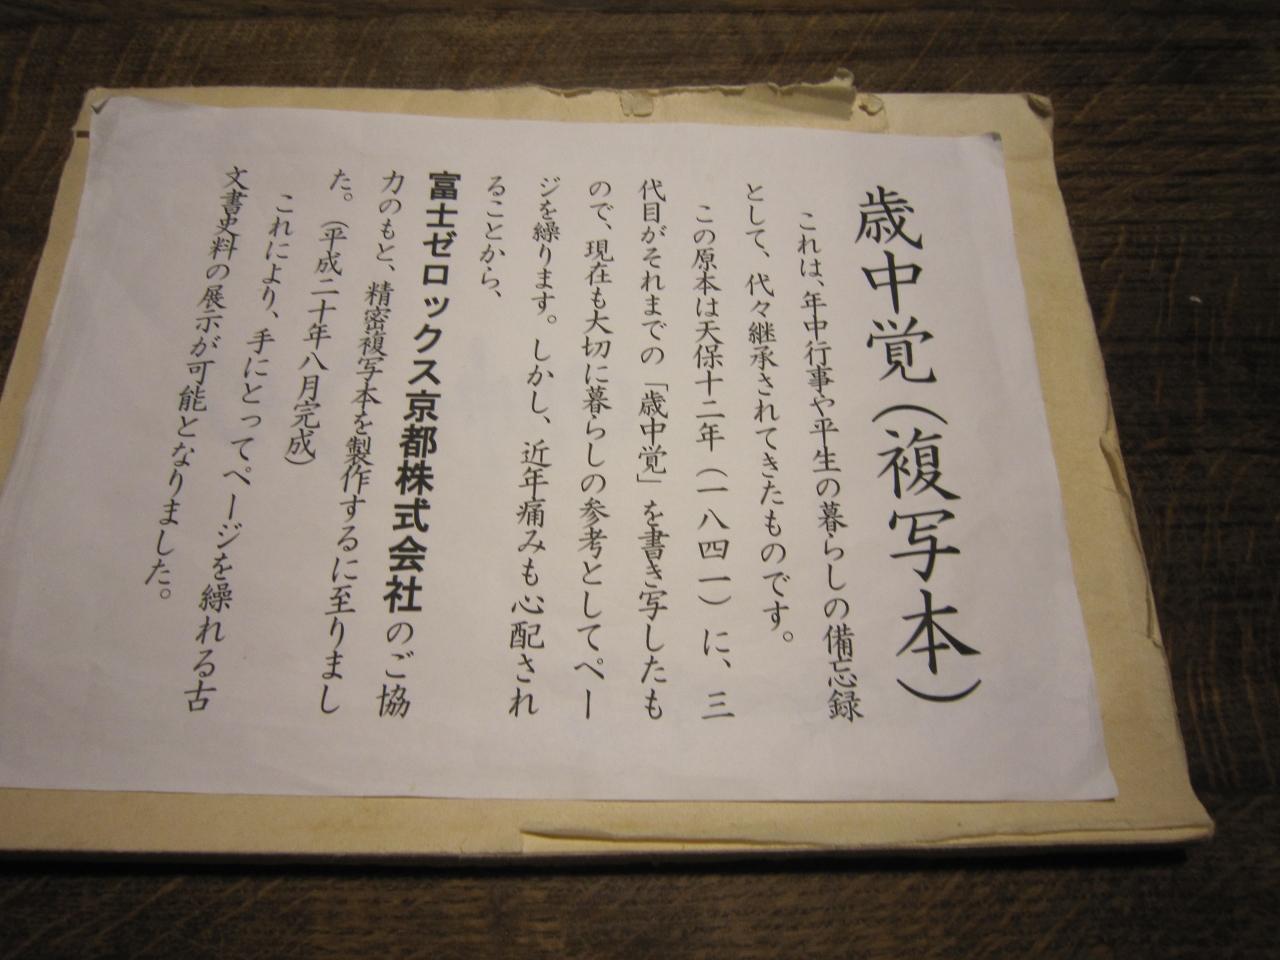 歳中覚（複写本）
これは、年中行事や平生の暮らしの備忘録
として、代々継承されてきたものです。
この原本は天保十二年（一八四一）に、三
代目がそれまでの「歳中覚」を書き写したも
ので、現在も大切に暮らしの参考としてペー
ジを繰ります。しかし、近年痛みも心配され
ることから、
富士ゼロックス京都株式会社のご協
力のもと、精密複写本を製作するに至りまし
た。（平成二十年八月完成）
これにより、手にとってページを繰れる古
文書史料の展示が可能となりました。